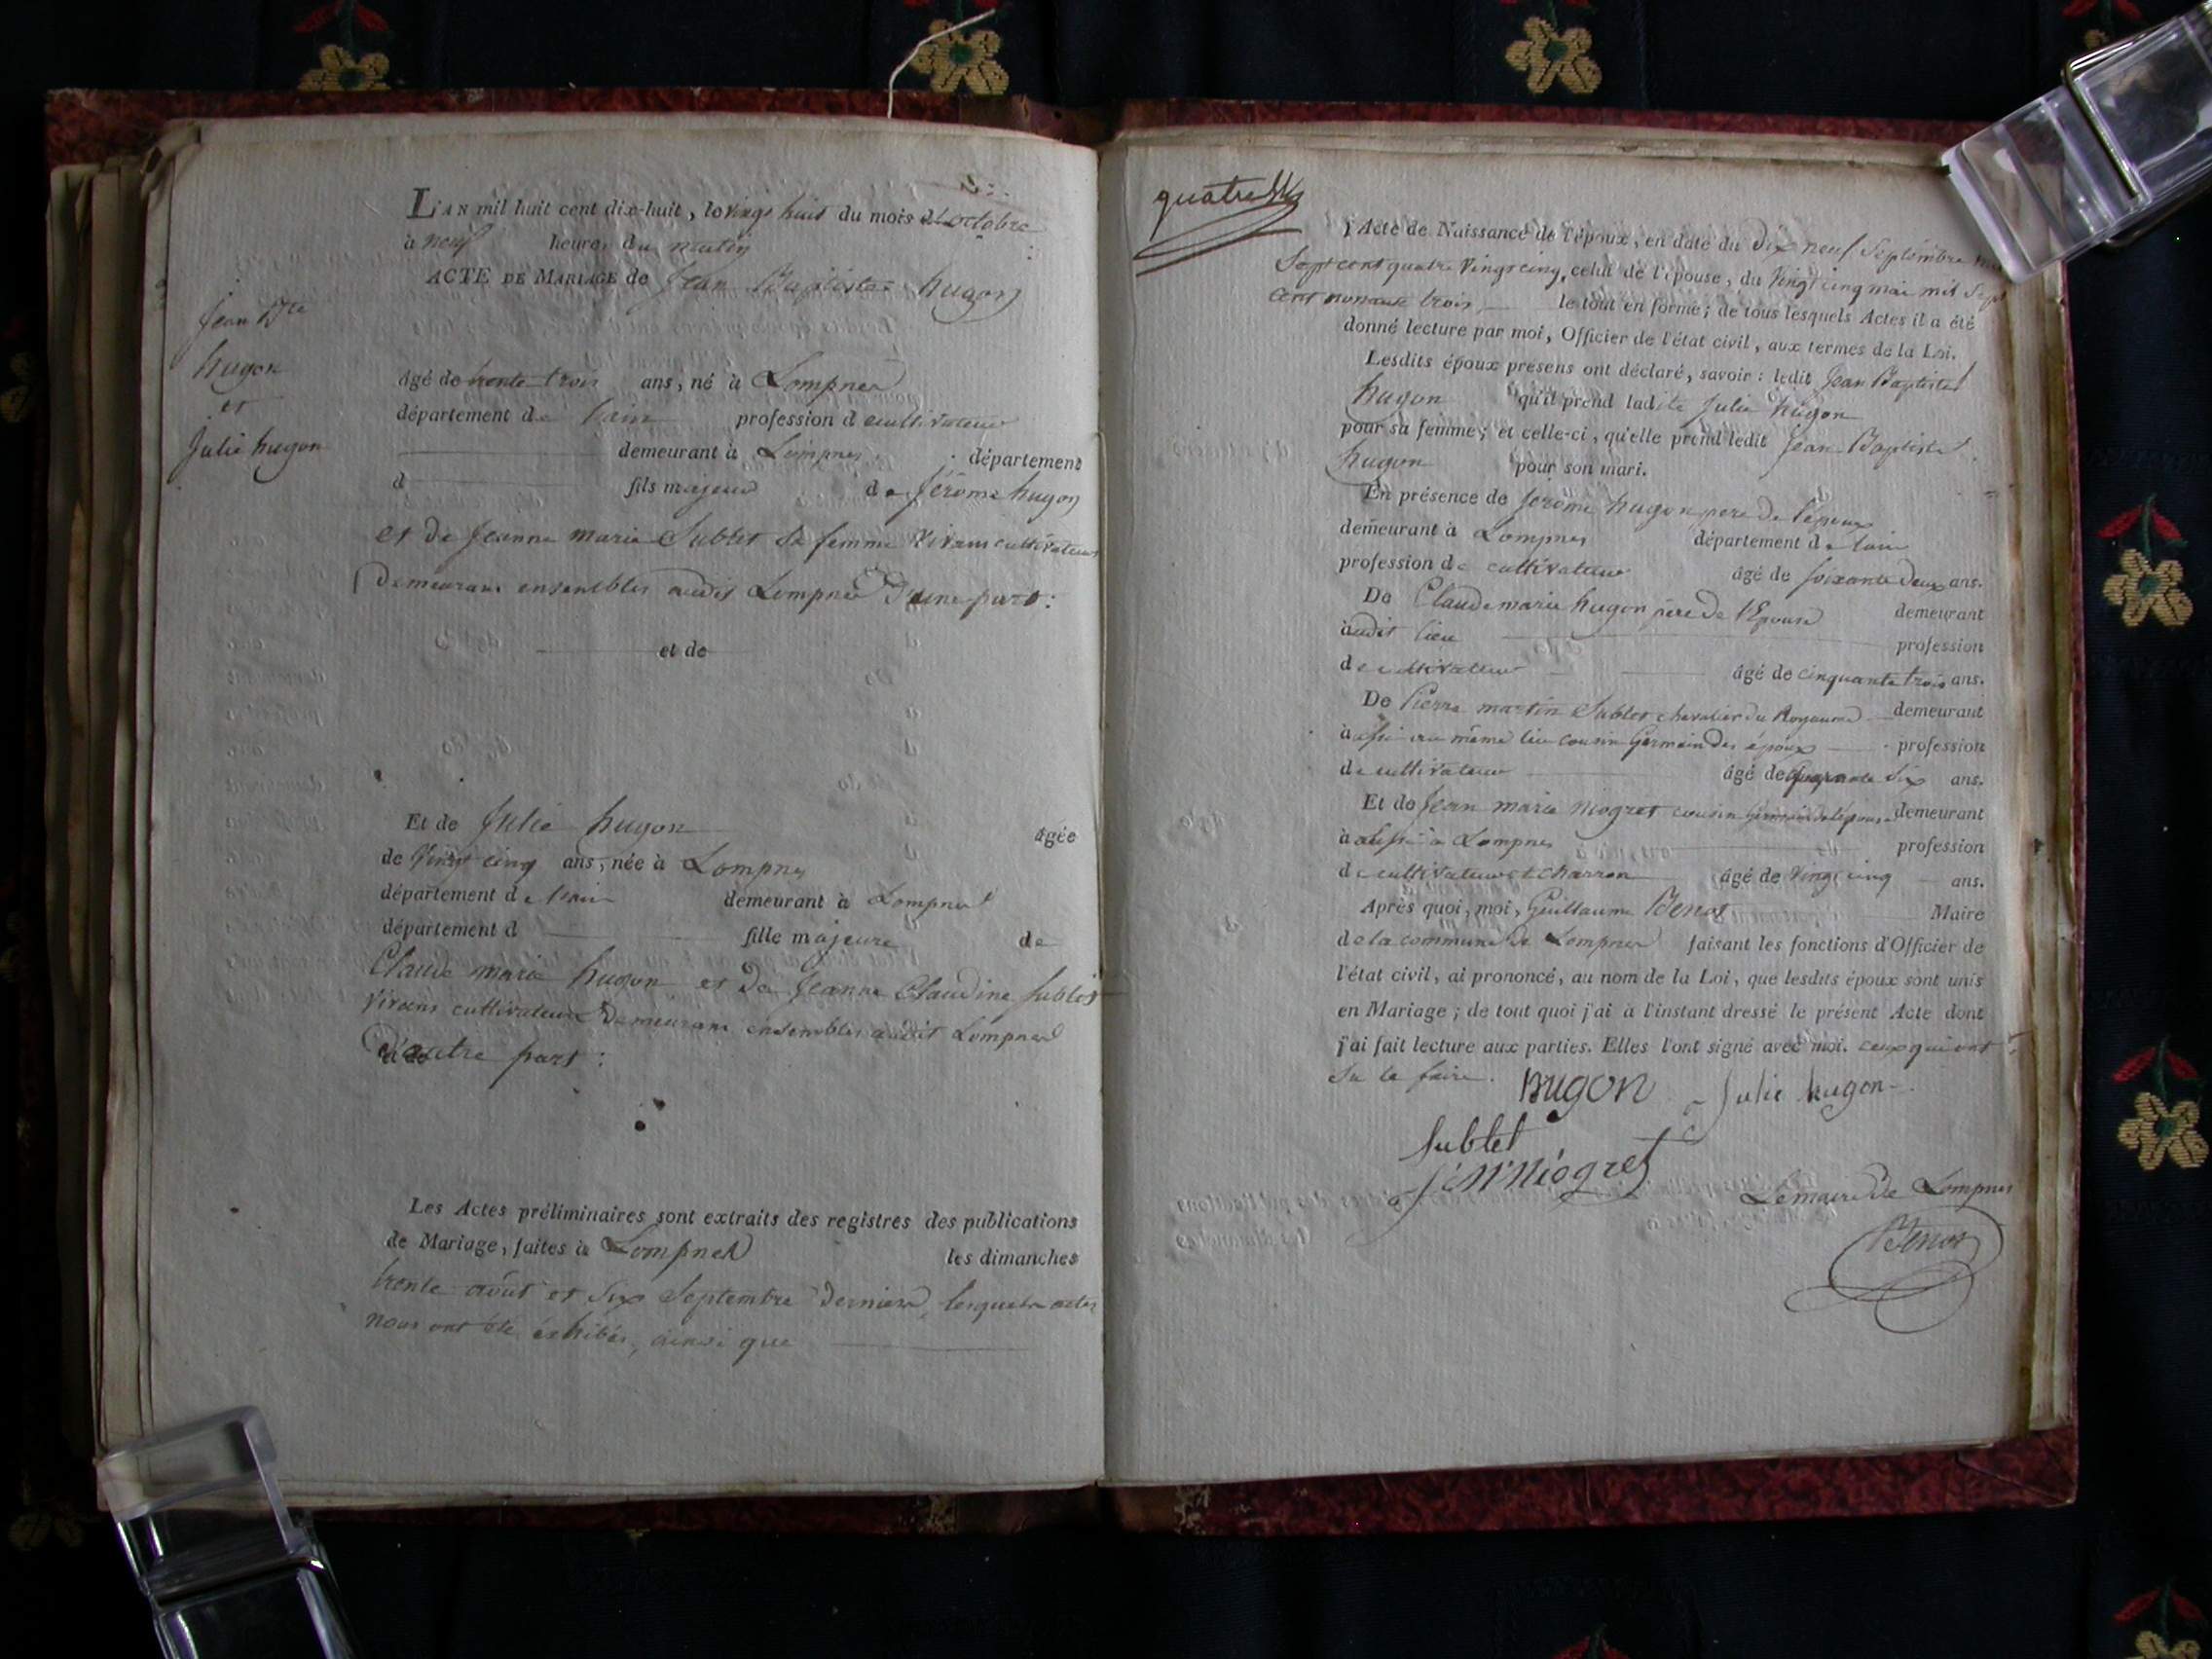 L'AN mil huit cent dix-huit, le vingt huit du mois d'octobre
à neuf heures du matin
ACTE DE MARIAGE de Jean Baptiste hugon
Jean Bte
hugon
et
Julie hugon
âgé de trente trois ans, né à Lompnes
département de l'ain profession d cultivateur
demeurant à Lompnes département
d fils majeur de Jérôme hugon
et de Jeanne marie Sublet sa femme vivans cultivateurs
demeurans ensembles audit Lompnes d'une part :
et de
Et de Julie hugon âgée
de vingt cinq ans, née à Lompnes
département de l'ain demeurant à Lompnes
département d fille majeure de
Claude marie hugon et de Jeanne Claudine Sublet
vivans cultivateurs demeurans ensembles audit Lompnes
d'autre part :
Les Actes préliminaires sont extraits des registres des publications
de Mariage, faites à Lompnes les dimanches
trente août et six Septembre derniers, lesquels actes
nous ont été exhibés, ainsi que
quatre
l'Acte de Naissance de l'époux, en date du dix neuf Septembre mil
Sept cent quatre vingt cinq, celui de l'épouse, du vingt cinq mai mil sept
cent nonante trois, le tout en forme; de tous lesquels Actes il a été
donné lecture par moi, Officier de l'état civil, aux termes de la Loi.
Lesdits époux présens ont déclaré, savoir : ledit Jean Baptiste
hugon qu'il prend ladite Julie hugon
pour sa femme; et celle-ci, qu'elle prend ledit Jean Baptiste
hugon pour son mari.
En présence de Jérôme hugon pere de l'époux
demeurant à Lompnes département de l'ain
profession de cultivateur âgé de soixante deux ans.
De Claude marie hugon père de l'Epouse demeurant
audit lieu profession
de cultivateur âgé de cinquante trois ans.
De Pierre martin Sublet chevalier du Royaume demeurant
à assi au même lieu cousin Germain des époux profession
de cultivateur âgé de six ans.
Et de Jean marie Niogret cousin Germain de l'épouse demeurant
à aussi à Lompnes profession
de cultivateur et charron âgé de vingt cinq ans.
Après quoi, moi, Guillaume Benot Maire
de la commune de Lompnes faisant les fonctions d'Officier de
l'état civil, ai prononcé, au nom de la Loi, que lesdits époux sont unis
en Mariage; de tout quoi j'ai à l'instant dressé le présent Acte dont
j'ai fait lecture aux parties. Elles l'ont signé avec moi. ceux qui ont
su le faire. hugon Julie hugon
Sublet
J M Niogret
Le maire de Lompnes
Benot